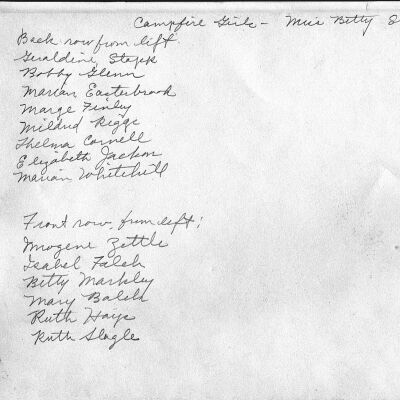 Campfire Girls - Miss Betty
Back row from left
Geraldine Stapp
Bobby Glenn
Marian Easterbrook
Marge Finley
Mildred Riggs
Thelma Cornell
Elizabeth Jackson
Marian Whitehill
Front row, from left:
Imogene Zettle
Isabel Falch
Betty Markley
Mary Balch
Ruth Hays
Ruth Slagle